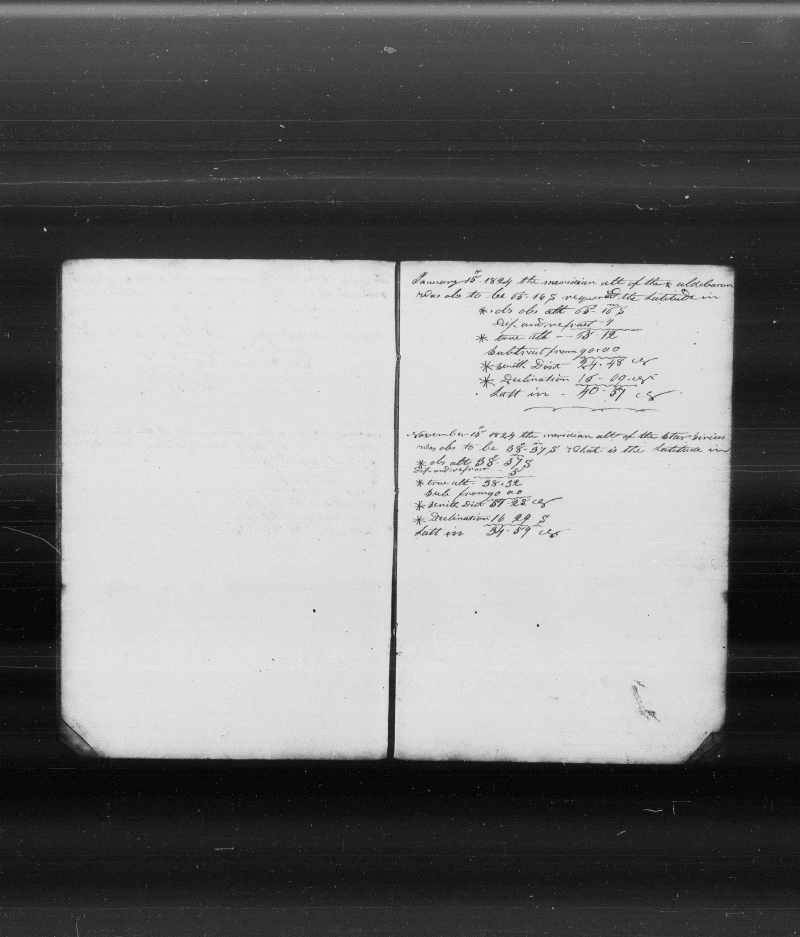 January 15th 1824 the meridian alt of the * aldebaran
was obs to be 65-16 S required the Latitude in
* obs alt 65-16 S
Dip and refract - 4
* true alt -- 65-12
Subtract from 90-00
* zenith Dist 24-48
* Declination 16-09
Latt in - 40-57
November 15th 1824 the meridian alt of the Star Sirius
was obs to be 38-37 S What is the Latitude in
* obs alt 38-37 S
Dip and refract - 5
* true alt - 38-32
Sub from 90 00
* zenith Dist 51-28
* Declination 16 29 S
Latt in 34-59